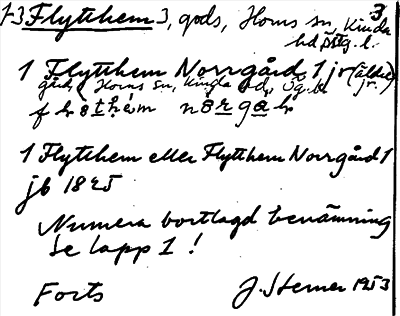 1-3 Flytthem 3, gods, Horns sn, Kinda
3
hd Östg. l.
1 Flytthem Norrgård 1 jr (äldre)
gård, Horns sn, Kinda hd, Ög. l. jr.
1 Flytthem eller Flytthem Norrgård 1
jb 1825
Numera bortlagd benämning
Se lapp 1!
Forts J. Sterner 1953